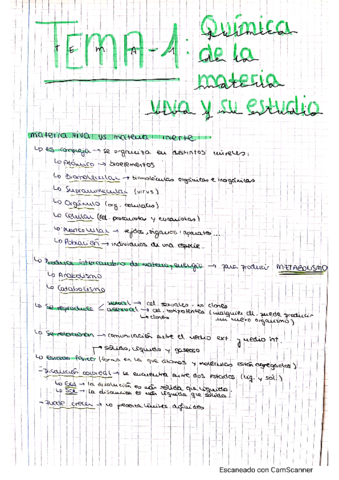 TEMA-1: Química
de la
materia
viva y su estudio
materia viva vs materia inerte
↳ es compleja → se organiza en distintos niveles:
↳ Atómico → bioelementos
↳ Biomolecular → biomoléculas orgánicas e inorgánicas
↳ Supramolecular (virus)
↳ Orgánulo (org. celulares)
↳ Celular (cel. procariotas y eucariotas)
↳ → tejidos, órganos, aparatos...
↳ Población → individuos de una especie.
↳ Produce intercambio de materia y energía → para producir METABOLISMO
↳ Anabolismo
↳ Catabolismo
↳ Se reproduce < sexual → cel. sexuales - no clones
asexual → cel. (cualquier cel. puede producir
↳ clones un nuevo organismo)
↳ Se relacionan → comunicación entre el medio ext. y medio int.
↳ sólido, líquido y gaseoso
↳ Estado físico (forma en la que átomos y moléculas están agregados)
- Disolución coloidal → se encuentra entre dos estados (líq. y sol.)
↳ Gel → la disolución es más sólida que líquida.
↳ Sol → la disolución es más líquida que sólida.
- Puede crecer → no presenta límites definidos
Escaneado con CamScanner